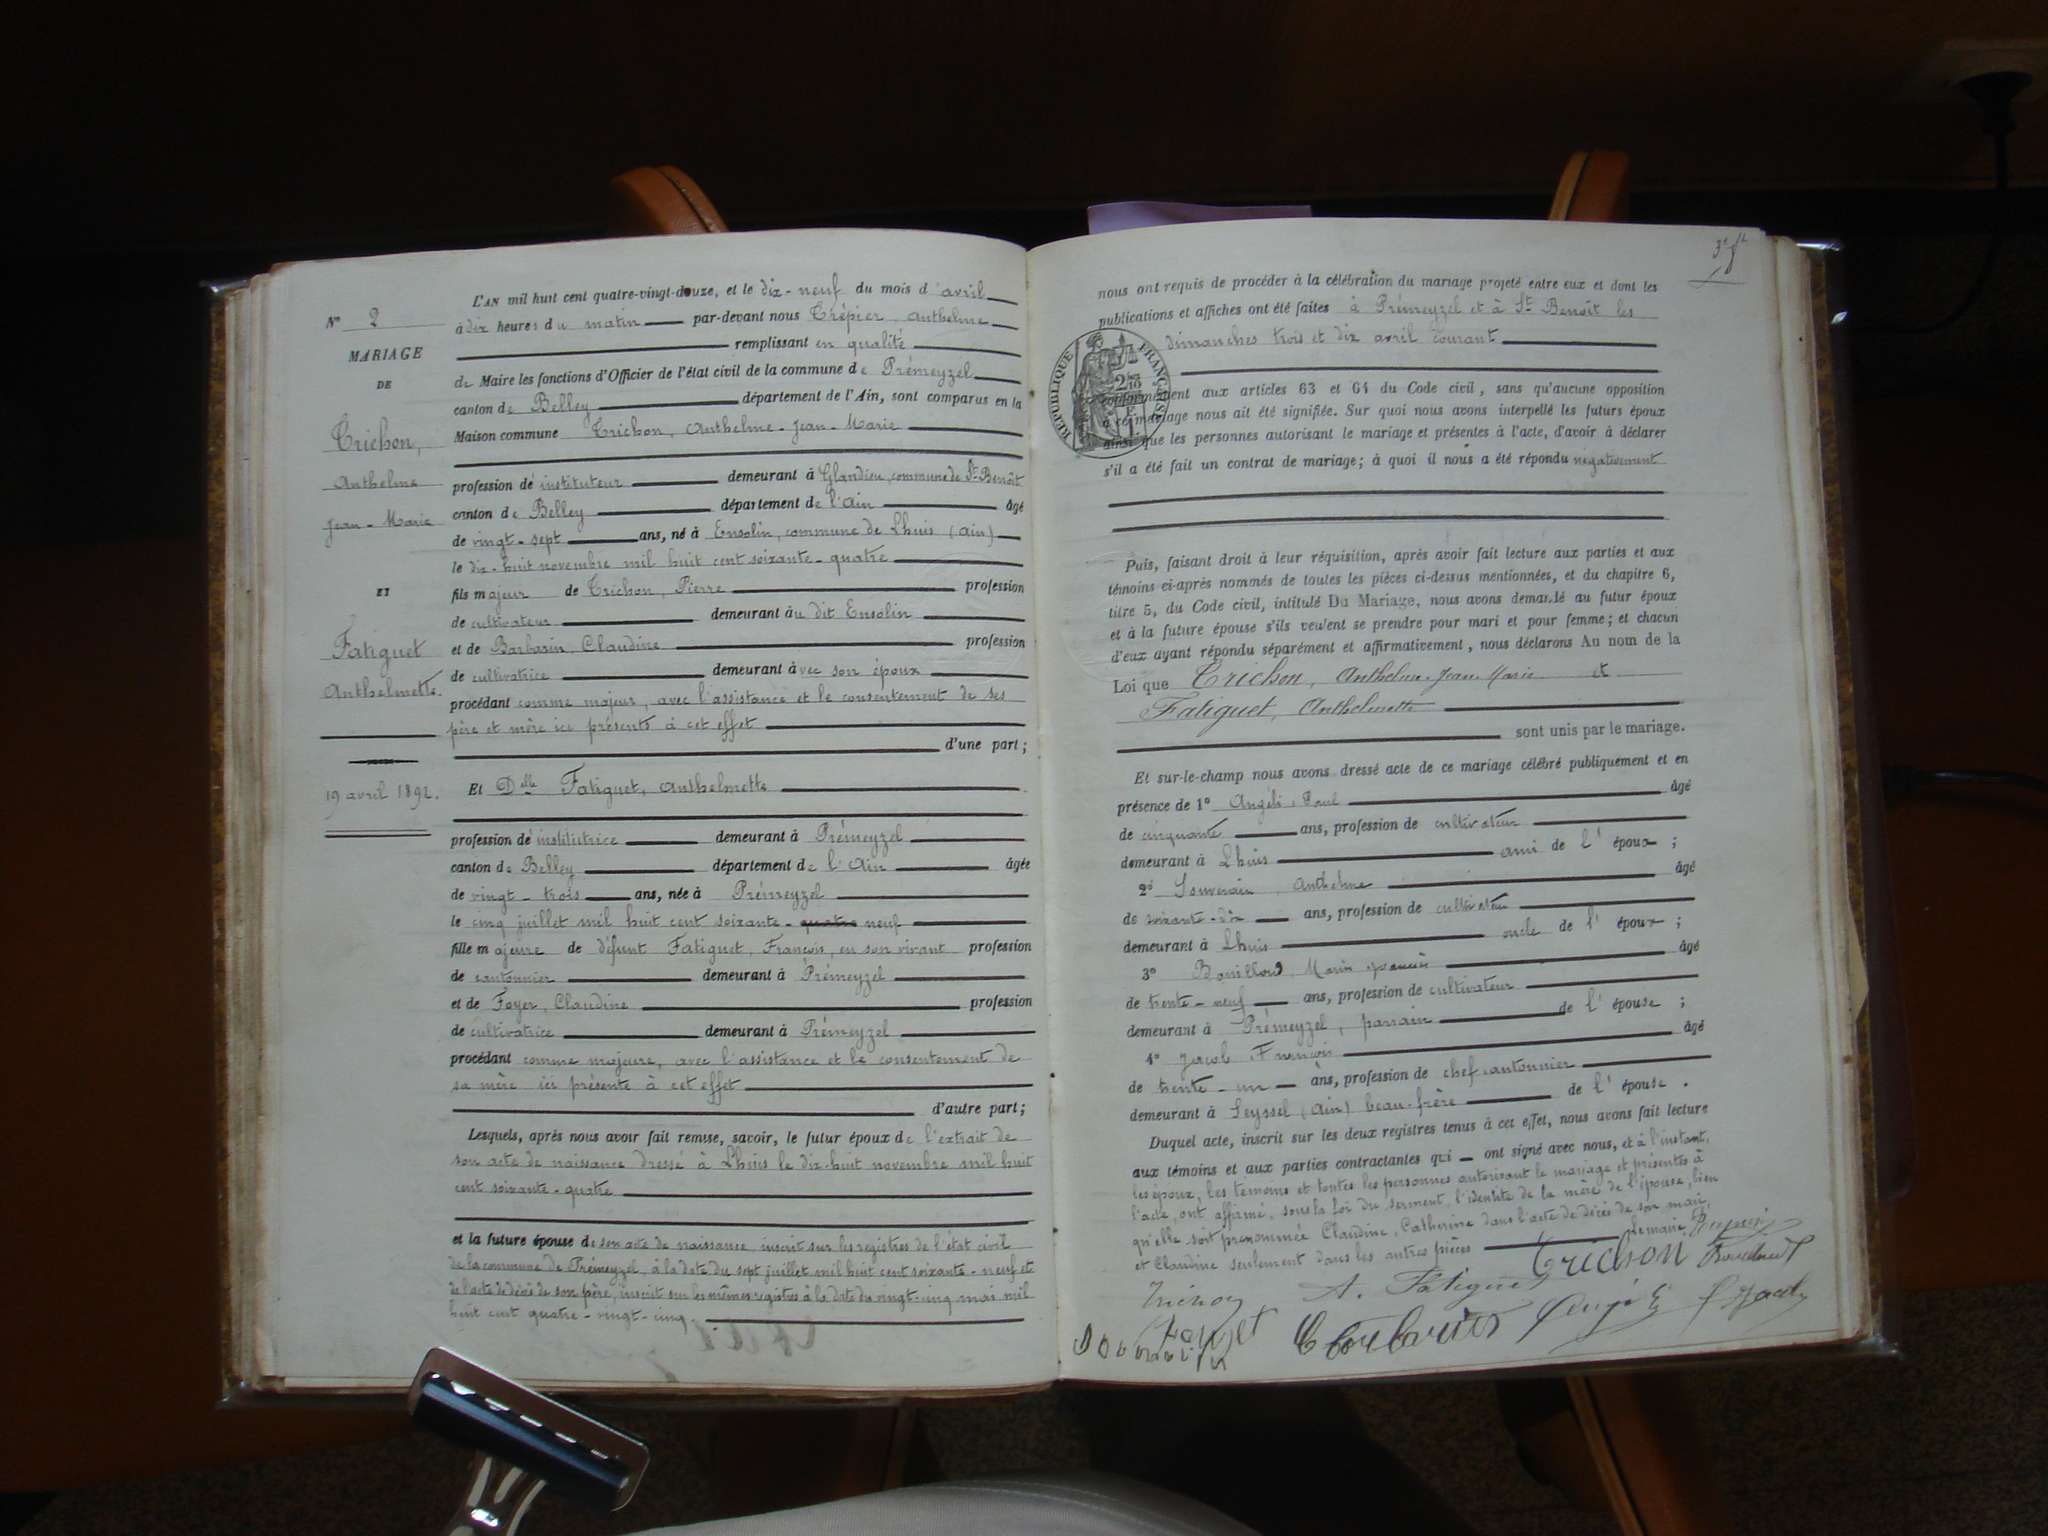 N° 2
MARIAGE
DE
Trichon,
Anthelme
Jean-Marie
ET
Fatiguet
Anthelmette.
19 avril 1892.
L'AN mil huit cent quatre-vingt-douze, et le dix-neuf du mois d'avril
à dix heures du matin par-devant nous Trépier, Anthelme
remplissant en qualité
de Maire les fonctions d'Officier de l'état civil de la commune de Prémeyzel
canton de Belley département de l'Ain, sont comparus en la
Maison commune Trichon, Anthelme-Jean-Marie
profession de instituteur demeurant à Glandieu, commune de St-Benoît
canton de Belley département de l'Ain âgé
de vingt-sept ans, né à Ensolin, commune de Lhuis (Ain)
le dix-huit novembre mil huit cent soixante-quatre
fils majeur de Trichon, Pierre profession
de cultivateur demeurant au dit Ensolin
et de Barbarin, Claudine profession
de cultivatrice demeurant avec son époux
procédant comme majeur, avec l'assistance et le consentement de ses
père et mère ici présents à cet effet
d'une part;
Et Delle Fatiguet, Anthelmette
profession de institutrice demeurant à Prémeyzel
canton de Belley département de l'Ain âgée
de vingt-trois ans, née à Prémeyzel
le cinq juillet mil huit cent soixante-quatre neuf
fille majeure de défunt Fatiguet, François, en son vivant profession
de cantonnier demeurant à Prémeyzel
et de Foyer, Claudine profession
de cultivatrice demeurant à Prémeyzel
procédant comme majeure, avec l'assistance et le consentement de
sa mère ici présente à cet effet
d'autre part;
Lesquels, après nous avoir fait remise, savoir, le futur époux de l'extrait de
son acte de naissance dressé à Lhuis le dix-huit novembre mil huit
cent soixante-quatre
et la future épouse de son acte de naissance inscrit sur les registres de l'état civil
de la commune de Prémeyzel, à la date du sept juillet mil huit cent soixante-neuf et
de l'acte de décès de son père, inscrit sur les mêmes registres à la date du vingt-cinq mai mil
huit cent quatre-vingt-cinq.
nous ont requis de procéder à la célébration du mariage projeté entre eux et dont les
publications et affiches ont été faites à Prémeyzel et à St Benoît les
dimanches trois et dix avril courant
RÉPUBLIQUE FRANÇAISE
conformément aux articles 63 et 64 du Code civil, sans qu'aucune opposition
à ce mariage nous ait été signifiée. Sur quoi nous avons interpellé les futurs époux
ainsi que les personnes autorisant le mariage et présentes à l'acte, d'avoir à déclarer
s'il a été fait un contrat de mariage; à quoi il nous a été répondu négativement
Puis, faisant droit à leur réquisition, après avoir fait lecture aux parties et aux
témoins ci-après nommés de toutes les pièces ci-dessus mentionnées, et du chapitre 6,
titre 5, du Code civil, intitulé Du Mariage, nous avons demandé au futur époux
et à la future épouse s'ils veulent se prendre pour mari et pour femme; et chacun
d'eux ayant répondu séparément et affirmativement, nous déclarons Au nom de la
Loi que Trichon, Anthelme-Jean-Marie et
Fatiguet, Anthelmette
sont unis par le mariage.
Et sur-le-champ nous avons dressé acte de ce mariage célébré publiquement et en
présence de 1° Angéli, Paul âgé
de cinquante ans, profession de cultivateur
demeurant à Lhuis ami de l'époux;
2° Souverain, Anthelme âgé
de soixante-dix ans, profession de cultivateur
demeurant à Lhuis oncle de l'époux;
3° Marin âgé
de trente-neuf ans, profession de cultivateur
demeurant à Prémeyzel, parrain de l'épouse;
4° Jacob François âgé
de trente-un ans, profession de chef cantonnier
demeurant à Seyssel (Ain) beau-frère de l'épouse.
Duquel acte, inscrit sur les deux registres tenus à cet effet, nous avons fait lecture
aux témoins et aux parties contractantes qui ont signé avec nous, et à l'instant,
les époux, les témoins et toutes les personnes autorisant le mariage et présentes à
l'acte, ont affirmé, sous la foi du serment, l'identité de la mère de l'épouse, bien
qu'elle soit prénommée Claudine, Catherine dans l'acte de décès de son mari,
et Claudine seulement dans les autres pièces le maire
Trichon
Trichon A. Fatiguet
F Jacob